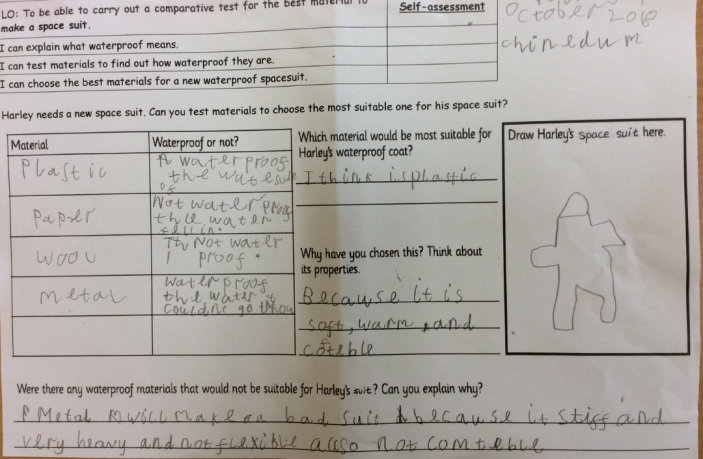 LO: To be able to carry out a comparative test for the best material to
make a space suit.
Self-assessment
I can explain what waterproof means.
I can test materials to find out how waterproof they are.
I can choose the best materials for a new waterproof spacesuit.
October 2018
chinedum
Harley needs a new space suit. Can you test materials to choose the most suitable one for his space suit?
Material
Waterproof or not?
Plastic
A waterproof
the water
of
Paper
Not water proof
the water
fell in.
wool
Not water
proof.
metal
water proof
the water
couldne go throu
Which material would be most suitable for
Harley's waterproof coat?
I think is plastic
Why have you chosen this? Think about
its properties.
Because it is
soft, warm, and
coteble
Draw Harley's space suit here.
Were there any waterproof materials that would not be suitable for Harley's suit? Can you explain why?
Metal will make a bad suit because it stiff and
very heavy and not flexible also not comteble